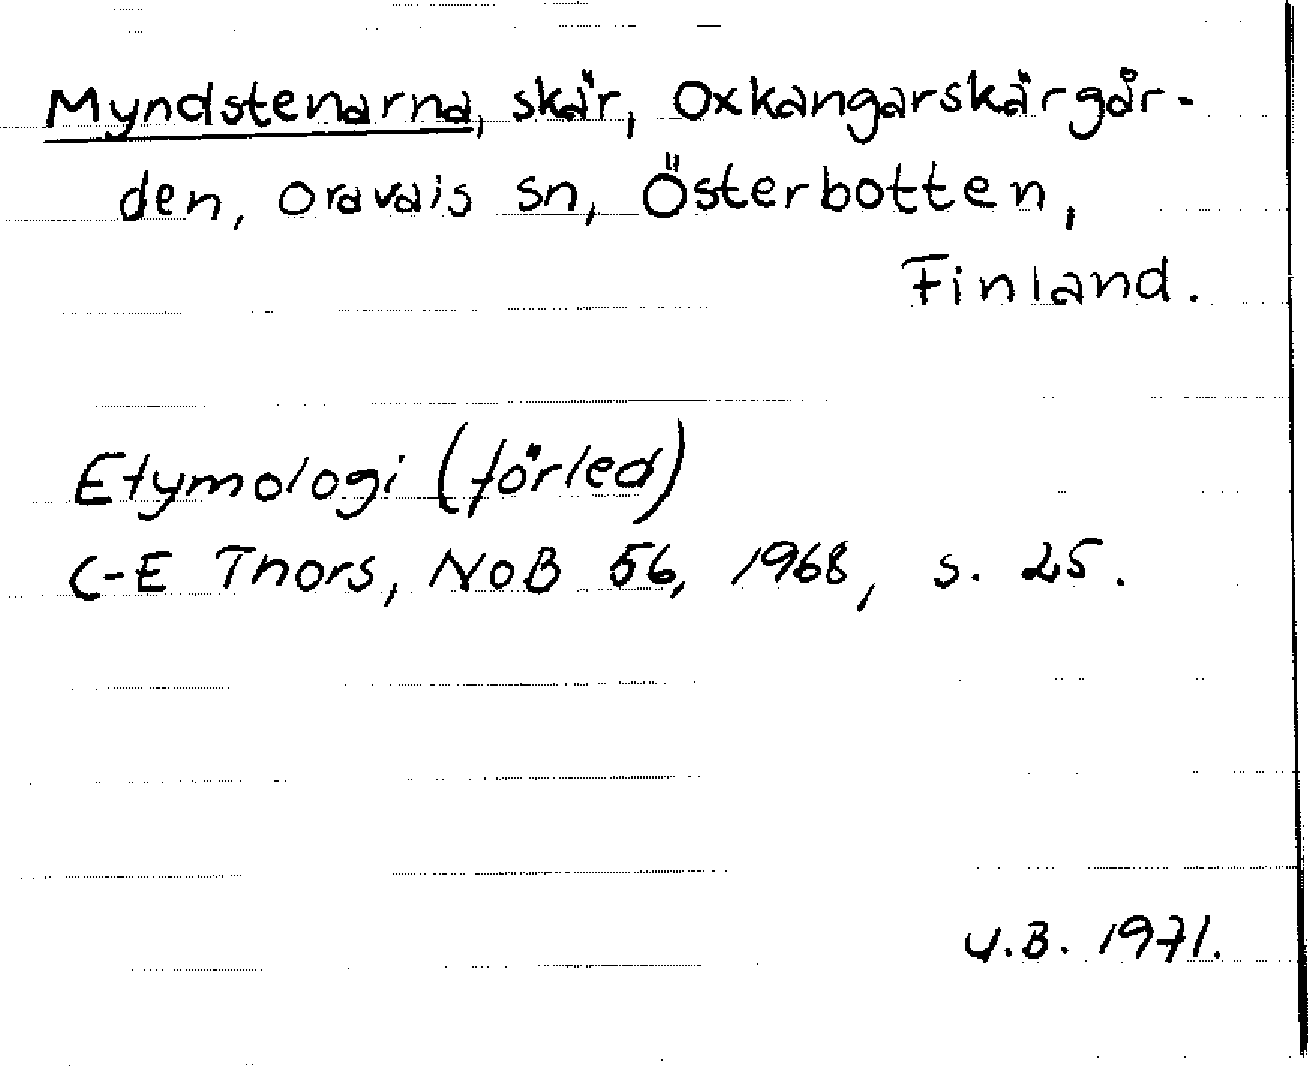 Myndstenarna, skär, Oxkangarskärgår-
den, Oravais sn, Österbotten,
Finland.
Etymologi (förled)
C-E Thors, NoB 56, 1968, s. 25.
U.B. 1971.